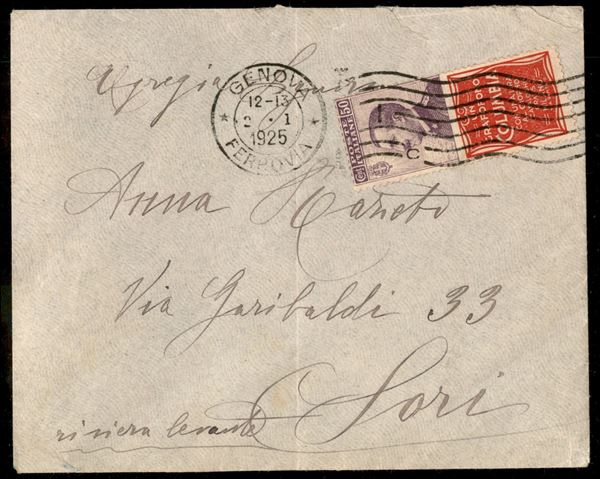 GENOVA
12-13
2 · 1
1925
FERROVIA
50
COLUMBIA
Egregia Signora
Anna
Via Garibaldi 33
Sori
riviera levante